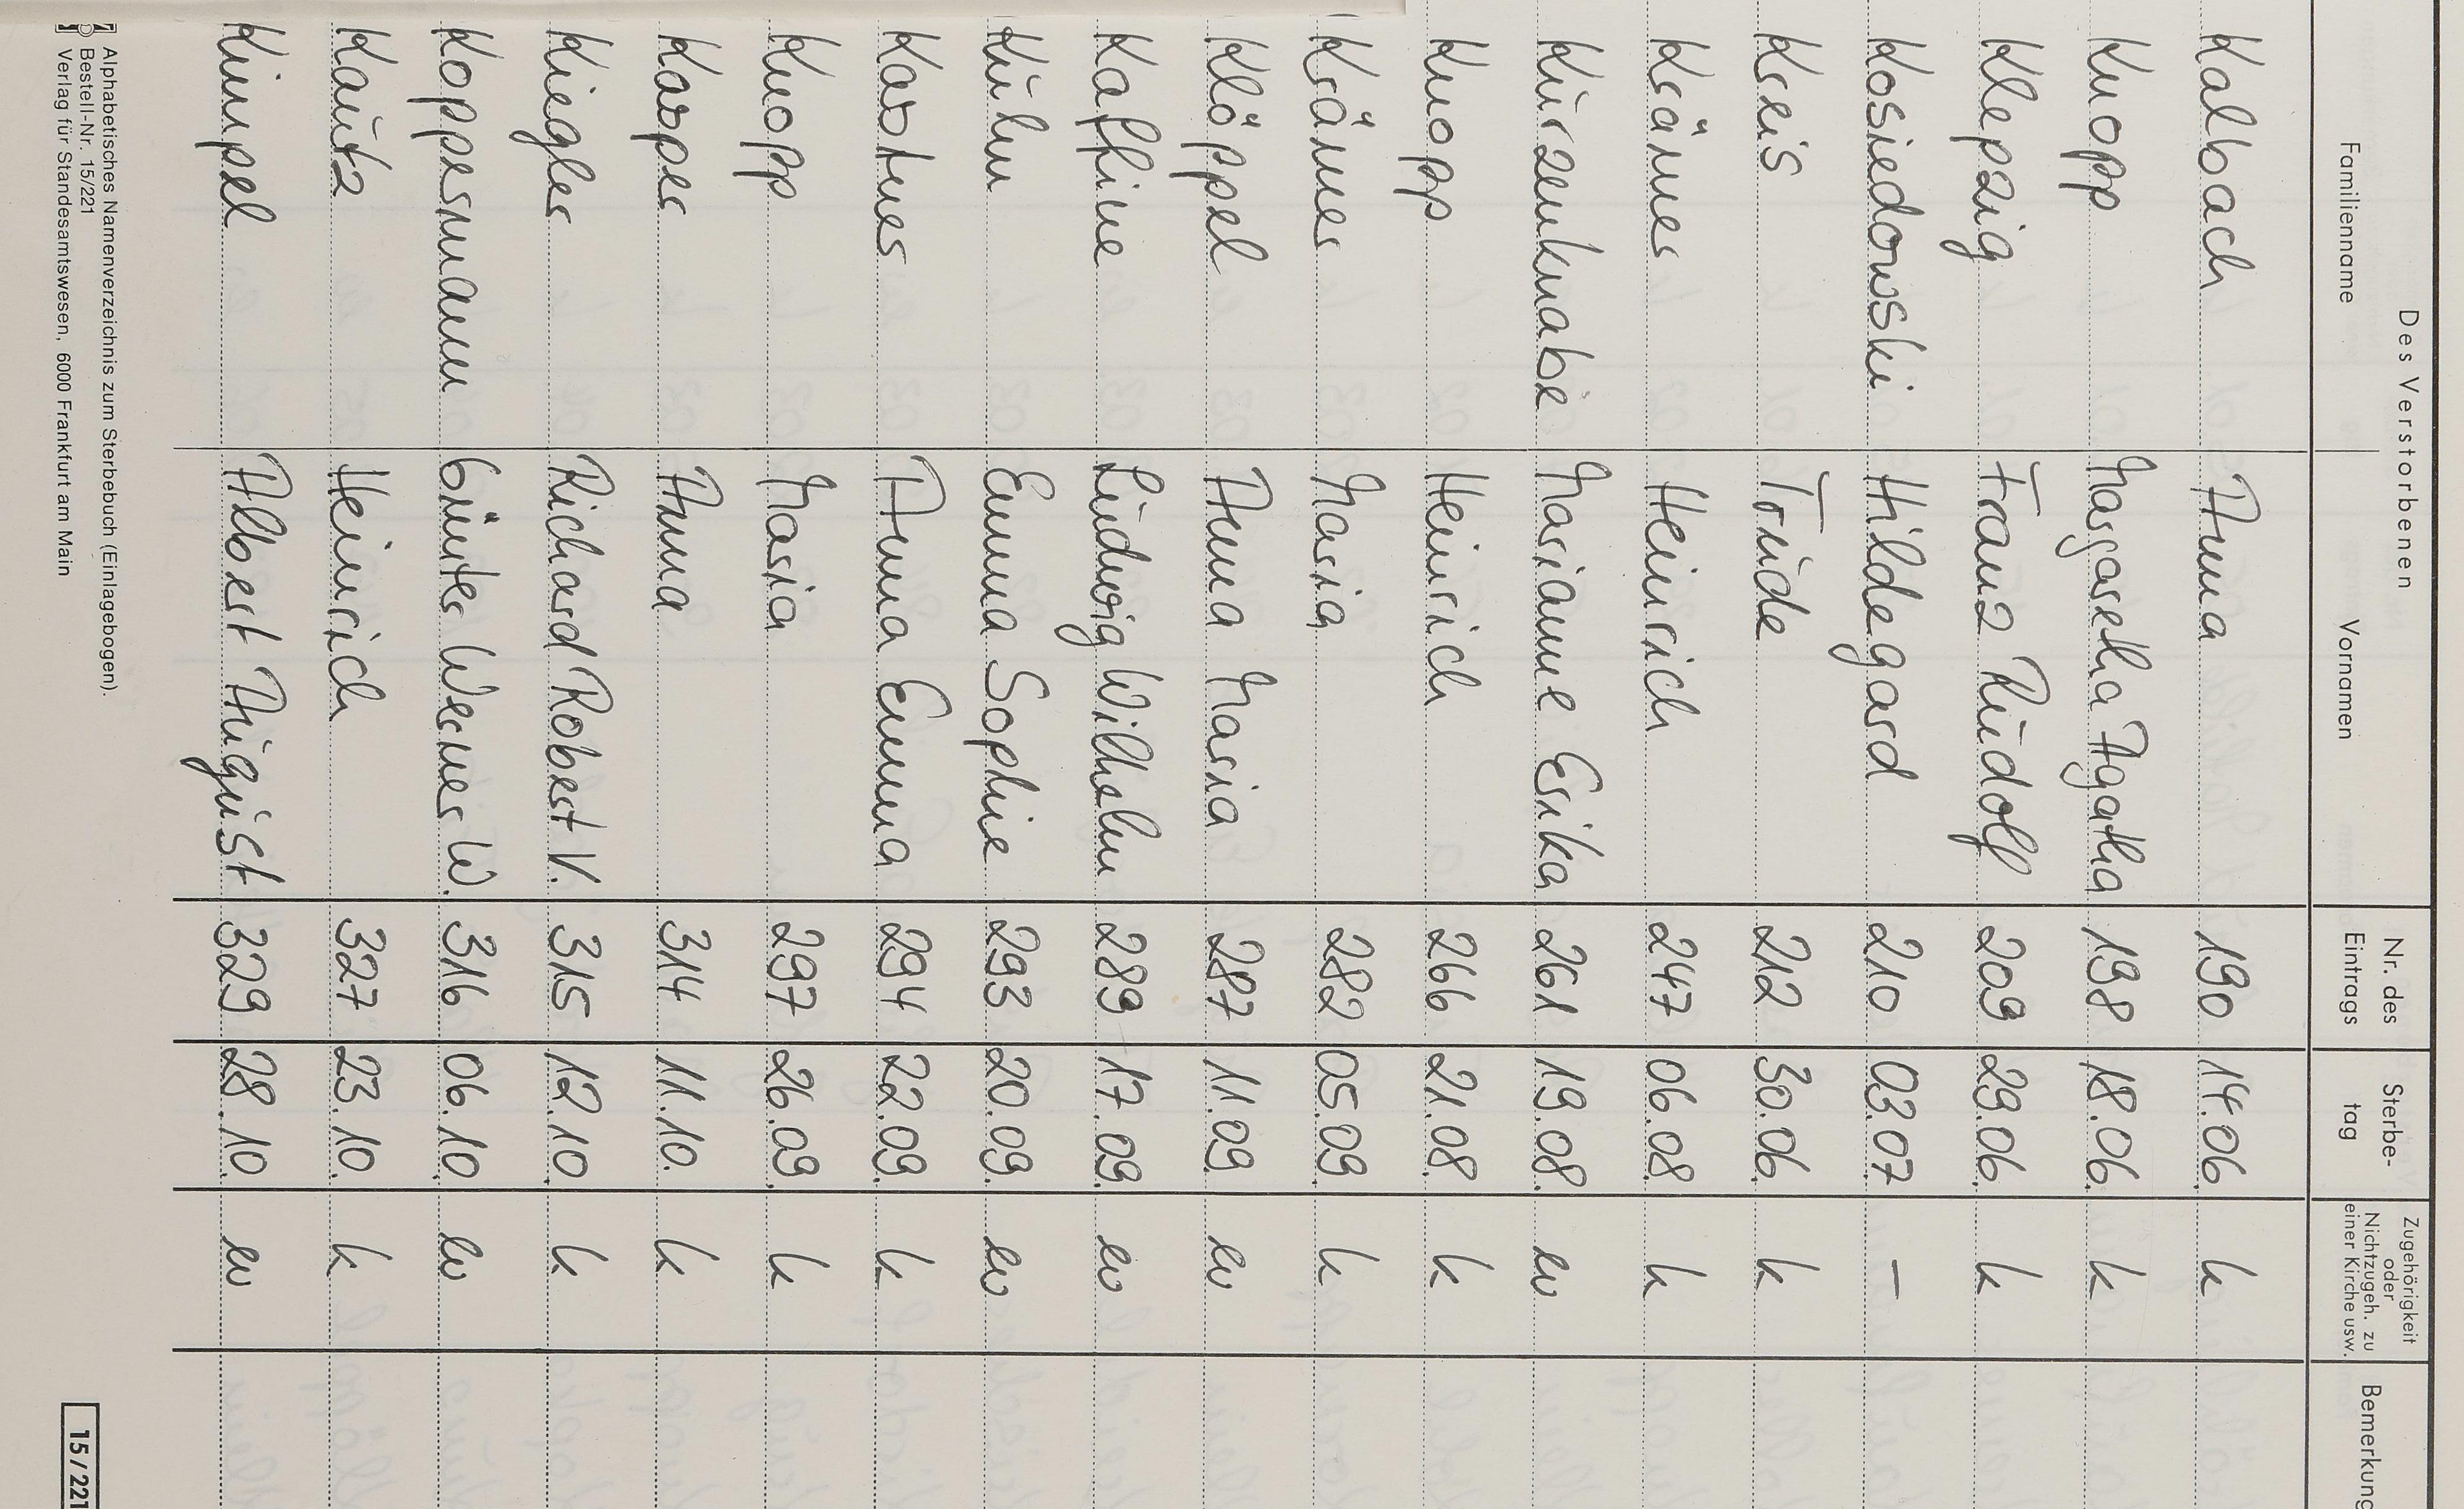 Des Verstorbenen
Familienname Vornamen Nr. des Eintrags Sterbe-tag Zugehörigkeit oder Nichtzugeh. zu einer Kirche usw. Bemerkung
Kalbach Anna 190 14.06. k
Knopp Margaretha Agatha 198 18.06. k
Klepzig Franz Rudolf 209 29.06. k
Kosiedowski Hildegard 210 03.07. –
Kreis Trude 212 30.06. k
Krämer Heinrich 247 06.08. k
Kurzenknabe Marianne Erika 261 19.08. ev
Knopp Heinrich 266 21.08. k
Krämer Maria 282 05.09. k
Klöppel Anna Maria 287 11.09. ev
Kaffine Ludwig Wilhelm 289 17.09. ev
Kuhn Emma Sophie 293 20.09. ev
Kastner Anna Emma 294 22.09. k
Knopp Maria 297 26.09. k
Kasper Anna 314 11.10. k
Kiegler Richard Robert V. 315 12.10. k
Koppermann Günter Werner W. 316 06.10. ev
Kautz Heinrich 327 23.10. k
Kimpel Albert August 329 28.10. ev
Alphabetisches Namenverzeichnis zum Sterbebuch (Einlagebogen).
Bestell-Nr. 15/221
Verlag für Standesamtswesen, 6000 Frankfurt am Main
15/221